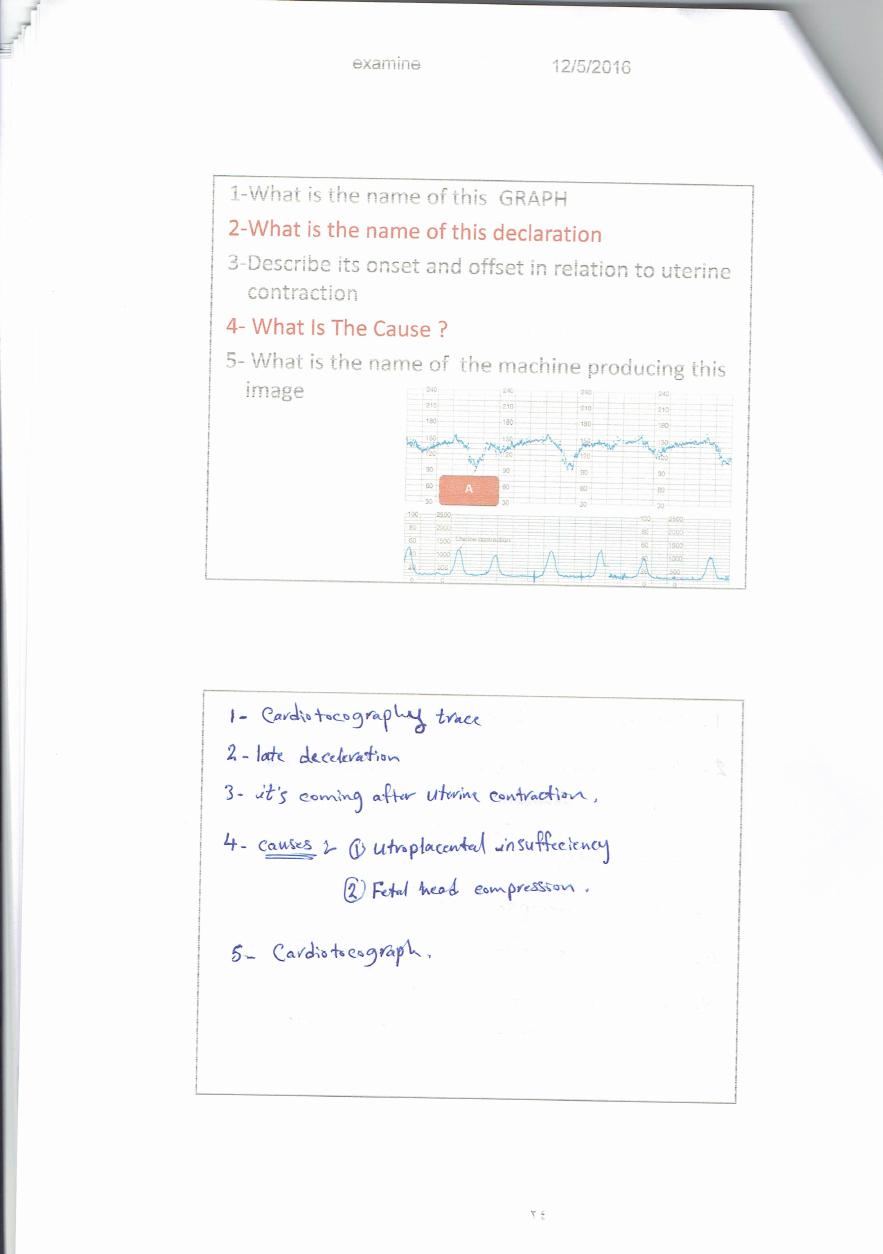 examine 12/5/2016
1-What is the name of this GRAPH
2-What is the name of this declaration
3-Describe its onset and offset in relation to uterine
contraction
4- What Is The Cause ?
5- What is the name of the machine producing this
image
240 240 240 240
210 210 210 210
180 180 180 180
150 150 150 150
120 120 120 120
90 90 90 90
60 60 60 60
30 30 30 30
A
100 2500 100 2500
80 2000 80 2000
60 1500 Uterine contraction 60 1500
40 1000 40 1000
20 500 20 500
0 0 0 0
1- Cardiotocography trace
2- late deceleration
3- it's coming after uterine contraction.
4- causes : ① utroplacental insuffeciency
② Fetal head compression.
5- Cardiotocograph.
٢٤